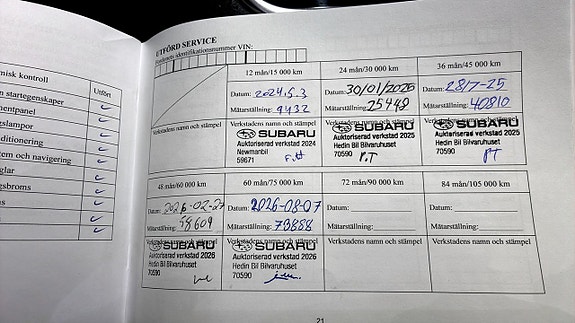 UTFÖRD SERVICE
Fordonets identifikationsnummer VIN:
misk kontroll
Utfört
n startegenskaper
mentpanel
gslampor
ditionering
tem och navigering
glar
ngsbroms
12 mån/15 000 km
Datum: 2024.5.3
Mätarställning: 9432
Verkstadens namn och stämpel
SUBARU
Auktoriserad verkstad 2024
Newmanbil
59671
24 mån/30 000 km
Datum: 30/01/2025
Mätarställning: 25448
Verkstadens namn och stämpel
SUBARU
Auktoriserad verkstad 2025
Hedin Bil Bilvaruhuset
70590 P.T
36 mån/45 000 km
Datum: 28/7-25
Mätarställning: 40810
Verkstadens namn och stämpel
SUBARU
Auktoriserad verkstad 2025
Hedin Bil Bilvaruhuset
70590 PT
48 mån/60 000 km
Datum: 2026-02-27
Mätarställning: 58609
Verkstadens namn och stämpel
SUBARU
Auktoriserad verkstad 2026
Hedin Bil Bilvaruhuset
70590
60 mån/75 000 km
Datum: 2026-08-07
Mätarställning: 79888
Verkstadens namn och stämpel
SUBARU
Auktoriserad verkstad 2026
Hedin Bil Bilvaruhuset
70590
72 mån/90 000 km
Datum:
Mätarställning:
Verkstadens namn och stämpel
84 mån/105 000 km
Datum:
Mätarställning:
Verkstadens namn och stämpel
21